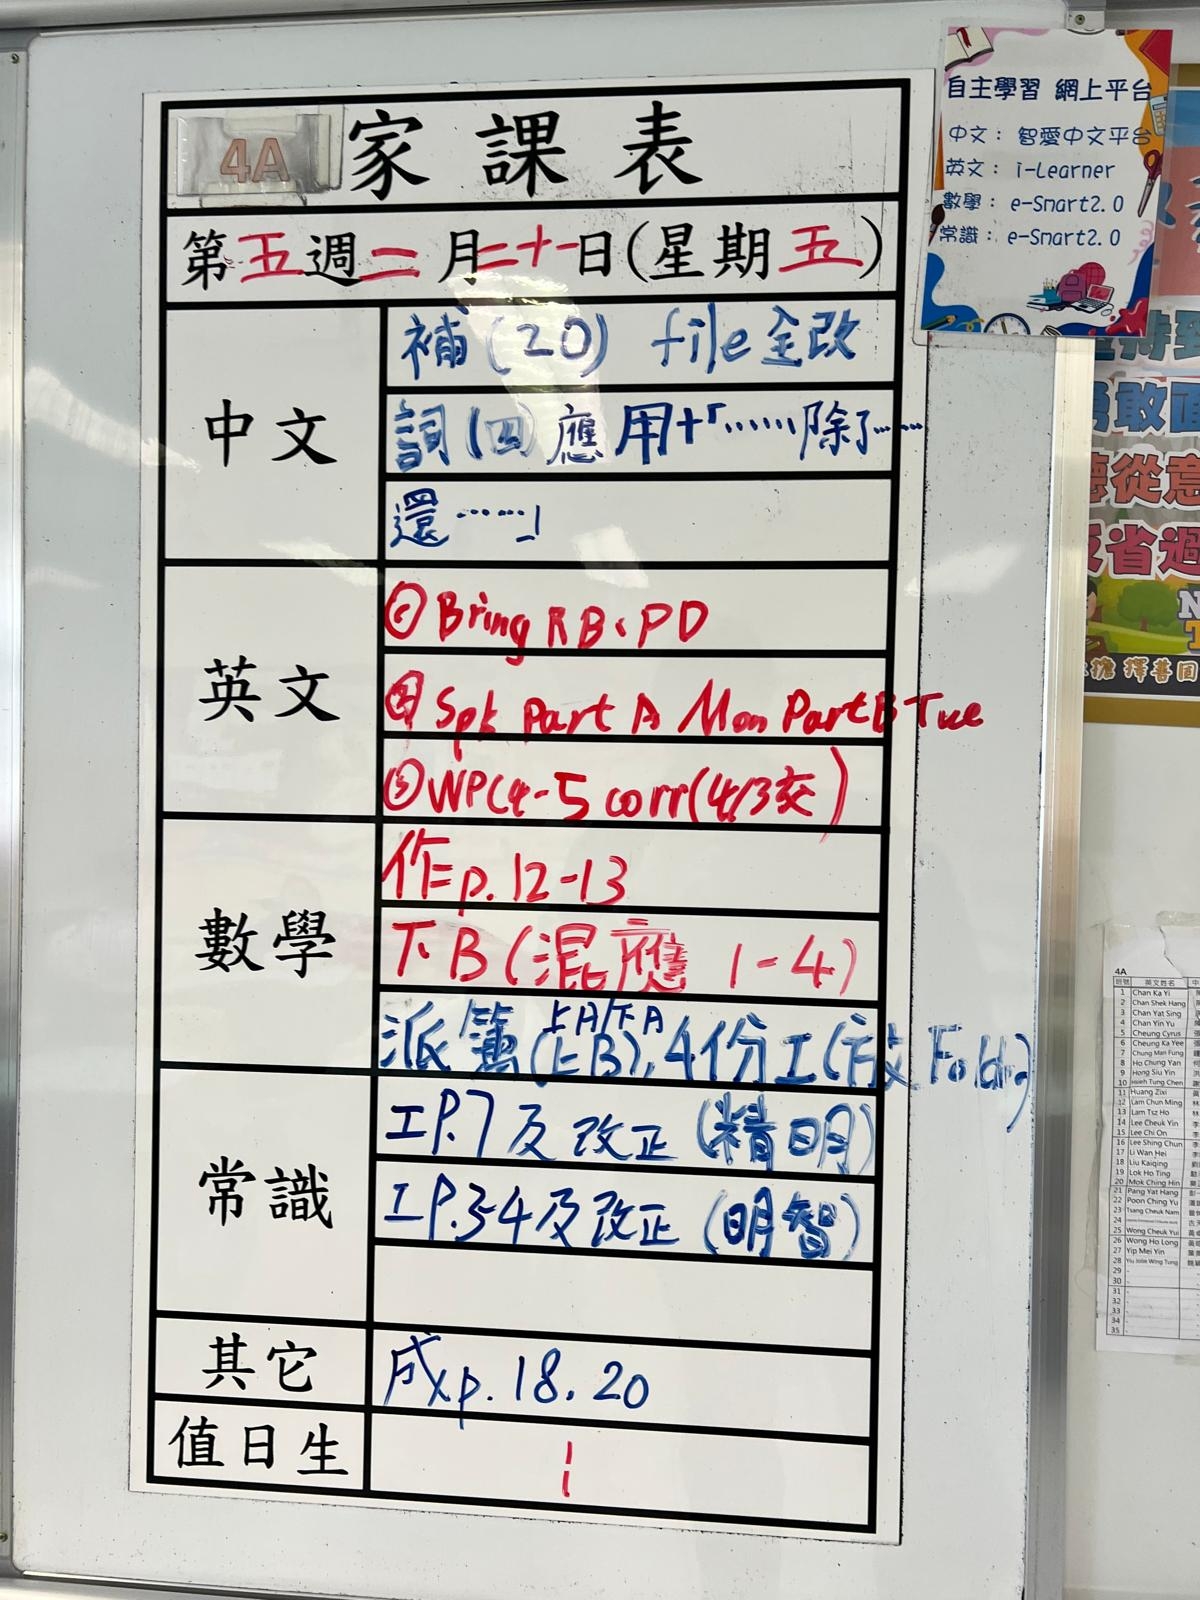 4A 家課表
第五週二月二十一日(星期五)
中文
補(20) file全改
詞(四)應用+「……除了……
還……」
英文
① Bring RB、PD
② Spk Part A Mon Part B Tue
③ WP(4-5 corr(4/3交)
數學
作p.12-13
下B(混應 1-4)
派簿(上A/下A
上B), 4份工(放Folder)
常識
工P.7及改正(精明)
工P.34及改正(明智)
其它
成p.18.20
值日生
自主學習 網上平台
中文： 智愛中文平台
英文： i-Learner
數學： e-Smart2.0
常識： e-Smart2.0
勇敢
從意
省過
擇善固
4A
英文姓名
1 Chan Ka Yi
2 Chan Shek Hang
3 Chan Yat Sing
4 Chan Yin Yu
5 Cheung Cyrus
6 Cheung Ka Yee
7 Chung Man Fung
8 Ho Chung Yan
9 Hong Siu Yin
10 Hsieh Tung Chen
11 Huang Zixi
12 Lam Chun Ming
13 Lam Tsz Ho
14 Lee Cheuk Yin
15 Lee Chi On
16 Lee Shing Chun
17 Li Wan Hei
18 Liu Kaiqing
19 Lok Ho Ting
20 Mok Ching Hin
21 Pang Yat Hang
22 Poon Ching Yu
23 Tsang Cheuk Nam
24
25 Wong Cheuk Yui
26 Wong Ho Long
27 Yip Mei Yin
28 Yiu Jolie Wing Tung
29
30
31
32
33
34
35